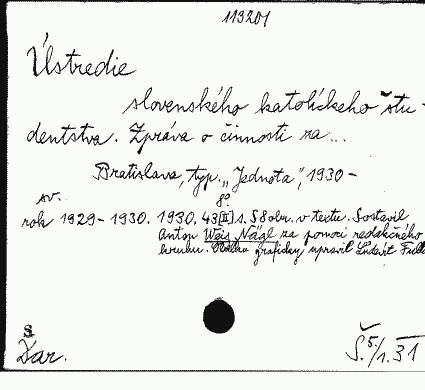 113201
Ústredie
slovenského katolíckeho štu-
dentstva. Zpráva o činnosti za...
Bratislava, typ. „Jednota", 1930-
sv. 8°
rok 1929-1930. 1930. 43[II] s. S 8 obr. v texte. Sostavil
Anton Weis Nägl za pomoci redakčného
kruhu. Obálku graficky upravil Ľudovít Fulla
S
Dar.
Š.5./1.31